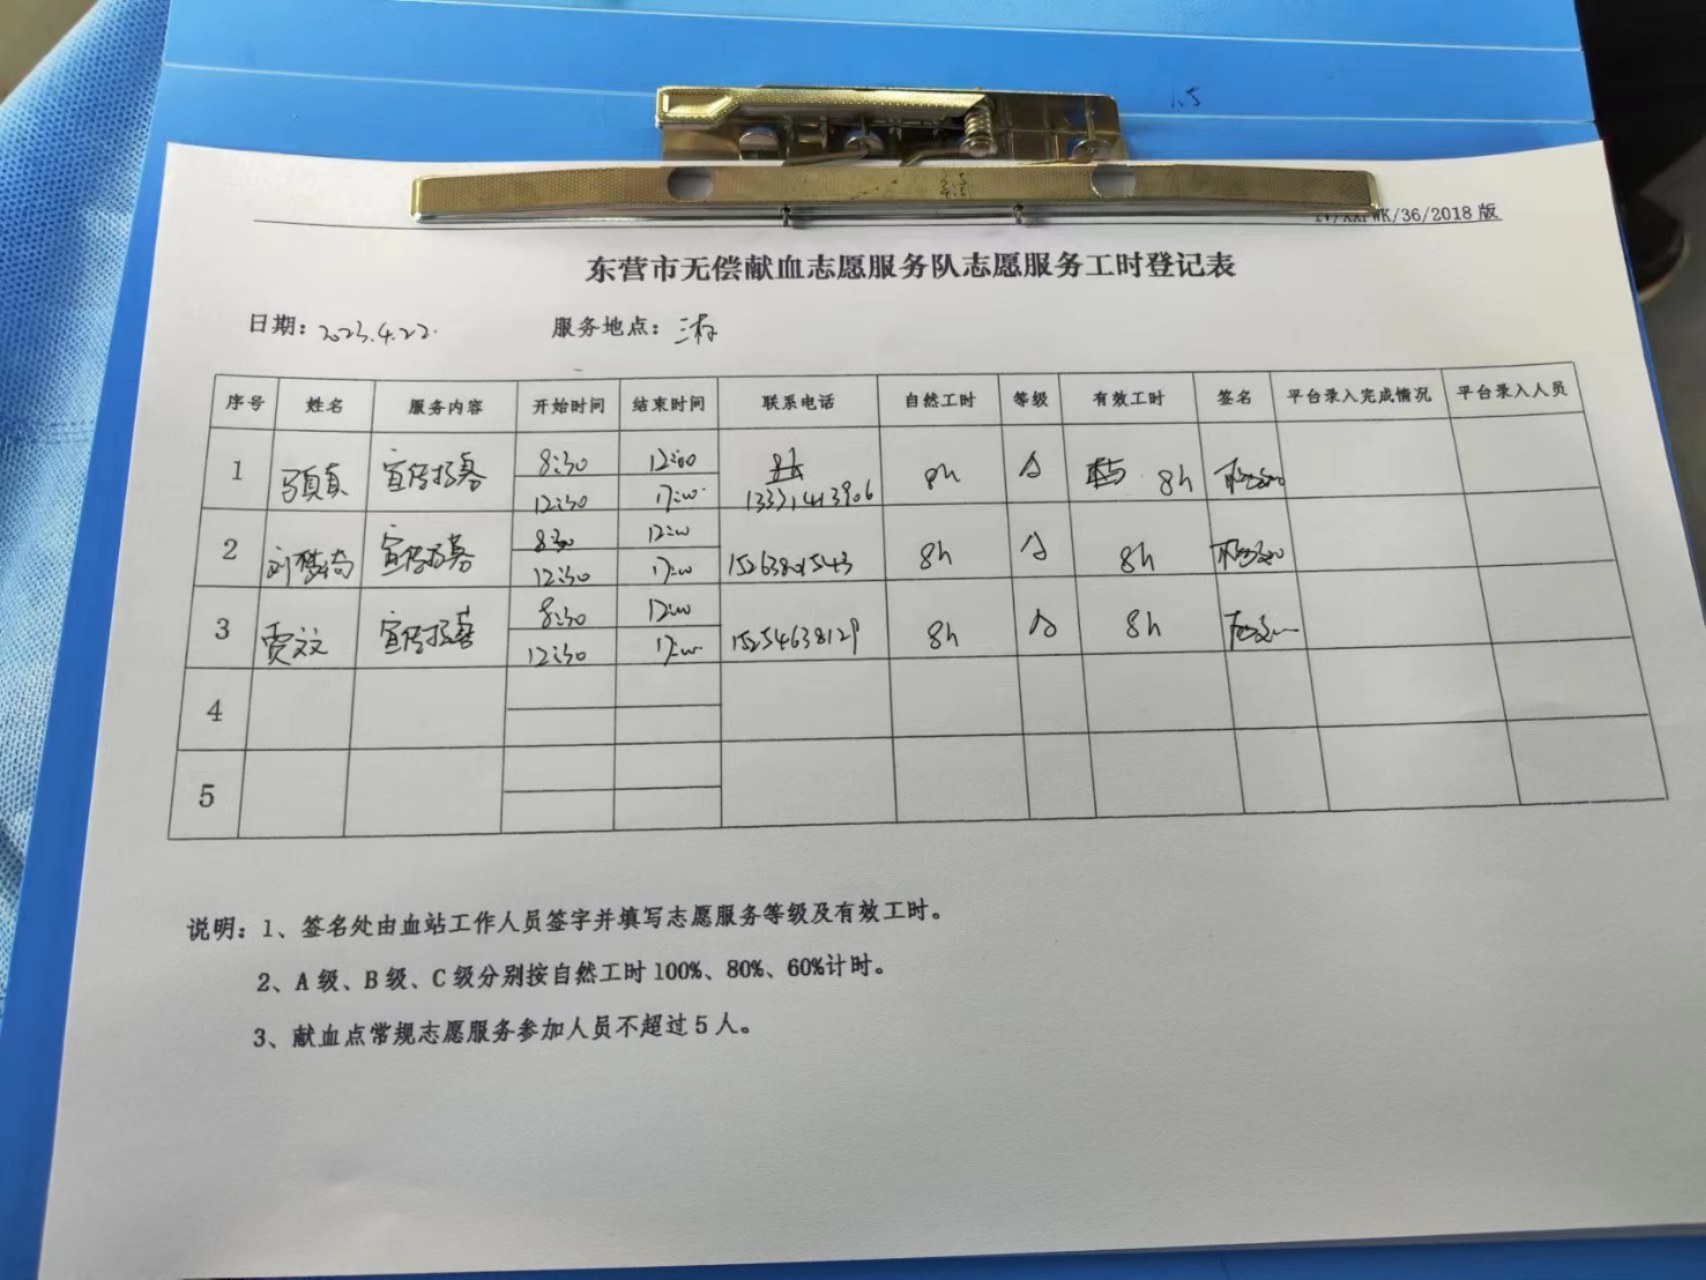 /36/2018 版
东营市无偿献血志愿服务队志愿服务工时登记表
日期: 2023.4.22. 服务地点:
序号 姓名 服务内容 开始时间 结束时间 联系电话 自然工时 等级 有效工时 签名 平台录入完成情况 平台录入人员
1 宣传招募 8:30 12:00 13371413906 8h A 8h
12:30 17:00
2 宣传招募 8:30 12:00 15263801543 8h A 8h
12:30 17:00
3 贾文文 宣传招募 8:30 12:00 15254638129 8h A 8h
12:30 17:00
4
5
说明: 1、签名处由血站工作人员签字并填写志愿服务等级及有效工时。
2、A 级、B 级、C 级分别按自然工时 100%、80%、60%计时。
3、献血点常规志愿服务参加人员不超过 5 人。